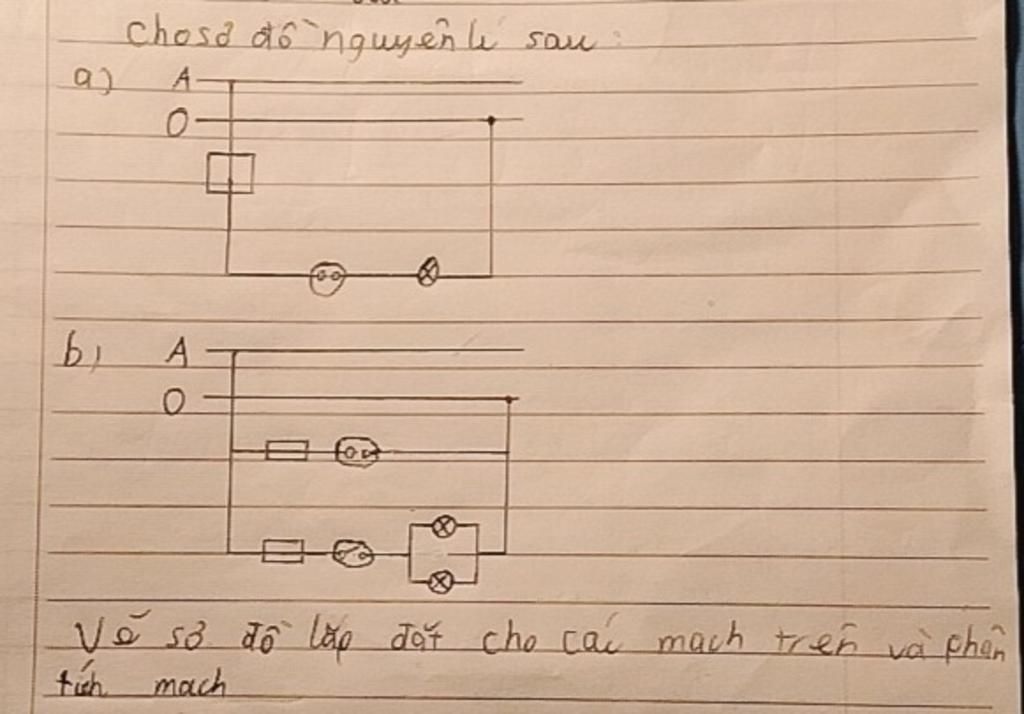 Cho sơ đồ nguyên lí sau:
a) A
O
b) A
O
Vẽ sơ đồ lắp đặt cho các mạch trên và phân
tích mạch